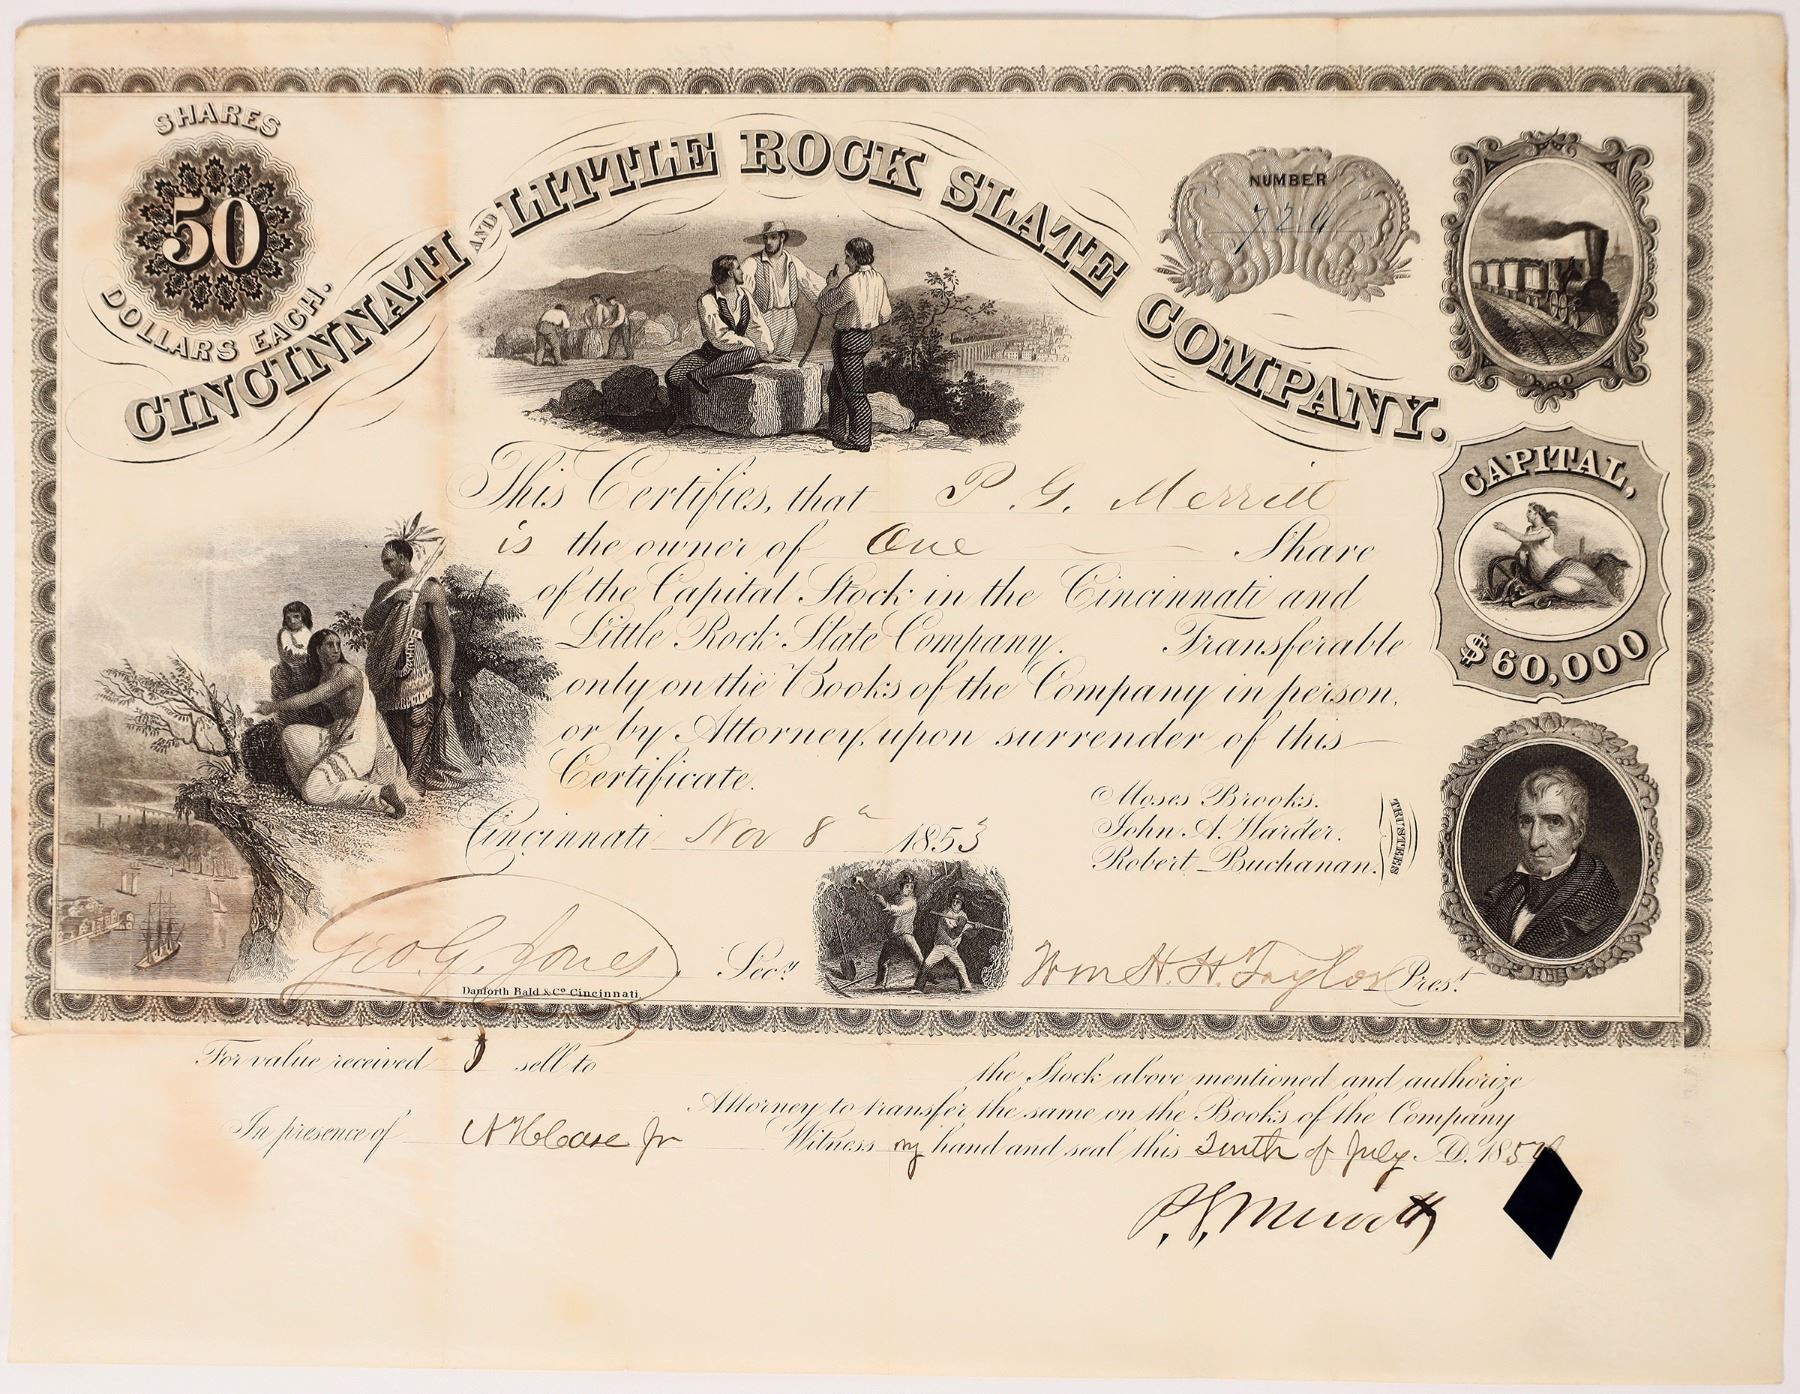 SHARES
50
DOLLARS EACH.
CINCINNATI AND LITTLE ROCK SLATE COMPANY.
NUMBER
724
CAPITAL,
$60,000
This Certifies, that P. G. Merritt
is the owner of One Share
of the Capital Stock in the Cincinnati and
Little Rock Slate Company. Transferable
only on the Books of the Company in person,
or by Attorney, upon surrender of this
Certificate.
Moses Brooks.
John A. Warder.
Robert Buchanan.
TRUSTEES
Cincinnati Nov 8th 1853
Geo. G. Jones Secy.
Wm H. H. Taylor Prest.
Danforth Bald & Co. Cincinnati.
For value received I sell to
the Stock above mentioned and authorize
Attorney to transfer the same on the Books of the Company
In presence of Jr Witness my hand and seal this Tenth of July A.D. 185
P. G. Merritt